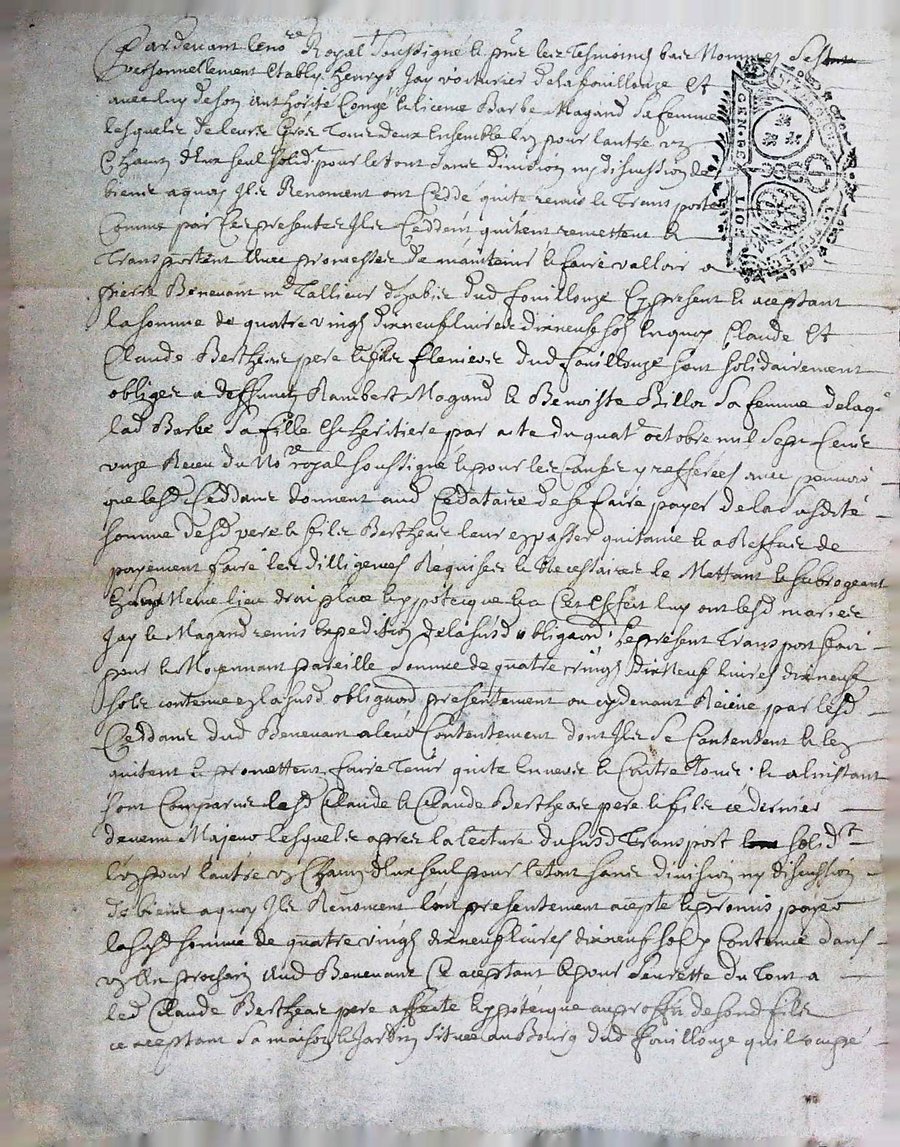 Pardevant le no.re Royal Soussigné & pnt les tesmoins bas Nommez
personnellement Estably henrys Jay voiturier de la fouillouze Et
avec luy de son authorité Congé & licence Barbe Magand sa femme
lesquels de leurs grés Tous deux Ensemble lun pour lautre un
Chacun d'Eux seul solid.t pour le tout sans Division ny discussion de
biens a quoy Ils Renoncent ont Ceddé quité remis & Transporté
Comme par Ces presentes Ils Ceddent quitent remettent &
Transportent avec promesses de maintenir & faire valloir a
pierre Benevant m.d Tallieur d'habis dud fouillouze Cy present & aceptant
la somme de quatre vings dixneuf livres dixneuf sols En quoy Claude Et
Claude Bertheas pere & fils dud fouillouze sont solidairement
obliges a deffunct Rambert Magand & Benoiste Billor sa femme delaq.
lad Barbe sa fille Est heritiere par acte du quat.e octobre mil Sept Cens
unze Receu du No.re royal soussigné & pour les Causes y refferées avec pouvoir
que lesd Ceddans donnent aud Cedataire de se faire payer de la susdite
somme desd pere & fils Bertheas leur en passer quitance & a Reffus de
payement faire les dilligences Requises & Necessaires le Mettant & subrogeant
Meme lieu droit place & ypoteque & a Cest Effect luy ont lesd maries
Jay & Magand remis Expedition de la susd obligaon. Le present Transport fait
pour & Moyennant pareille somme de quatre vings Dixneuf livres dixneuf
sols contenue En la susd obligaon presentement ou cydevant Reçeue par lesd
Ceddans dud Benevant a leur Contentement dont Ils Se Contentent & le
quitent & promettent faire tenir quite Envers & Contre Tous. & a l'instant
sont Comparus lesd Claude & Claude Bertheas pere & fils ce dernier
devenu Majeur lesquels apres la lecture du susd Transport solid.t
lun pour lautre un Chacun d'Eux seul pour le tout sans division ny discussion
de biens a quoy Ils Renoncent lont presentement acepté & promis payer
la susd somme de quatre vings dixneuf livres dixneuf sols y Contenue dans
un an prochain aud Benevant Ce aceptant & pour seurette du Tout a
led Claude Bertheas pere affecté & ypotéqué au proffit de sond fils
ce aceptant sa maison & Jardin située au Bourg dud fouillouze quil occupe
GEN·DE
LION